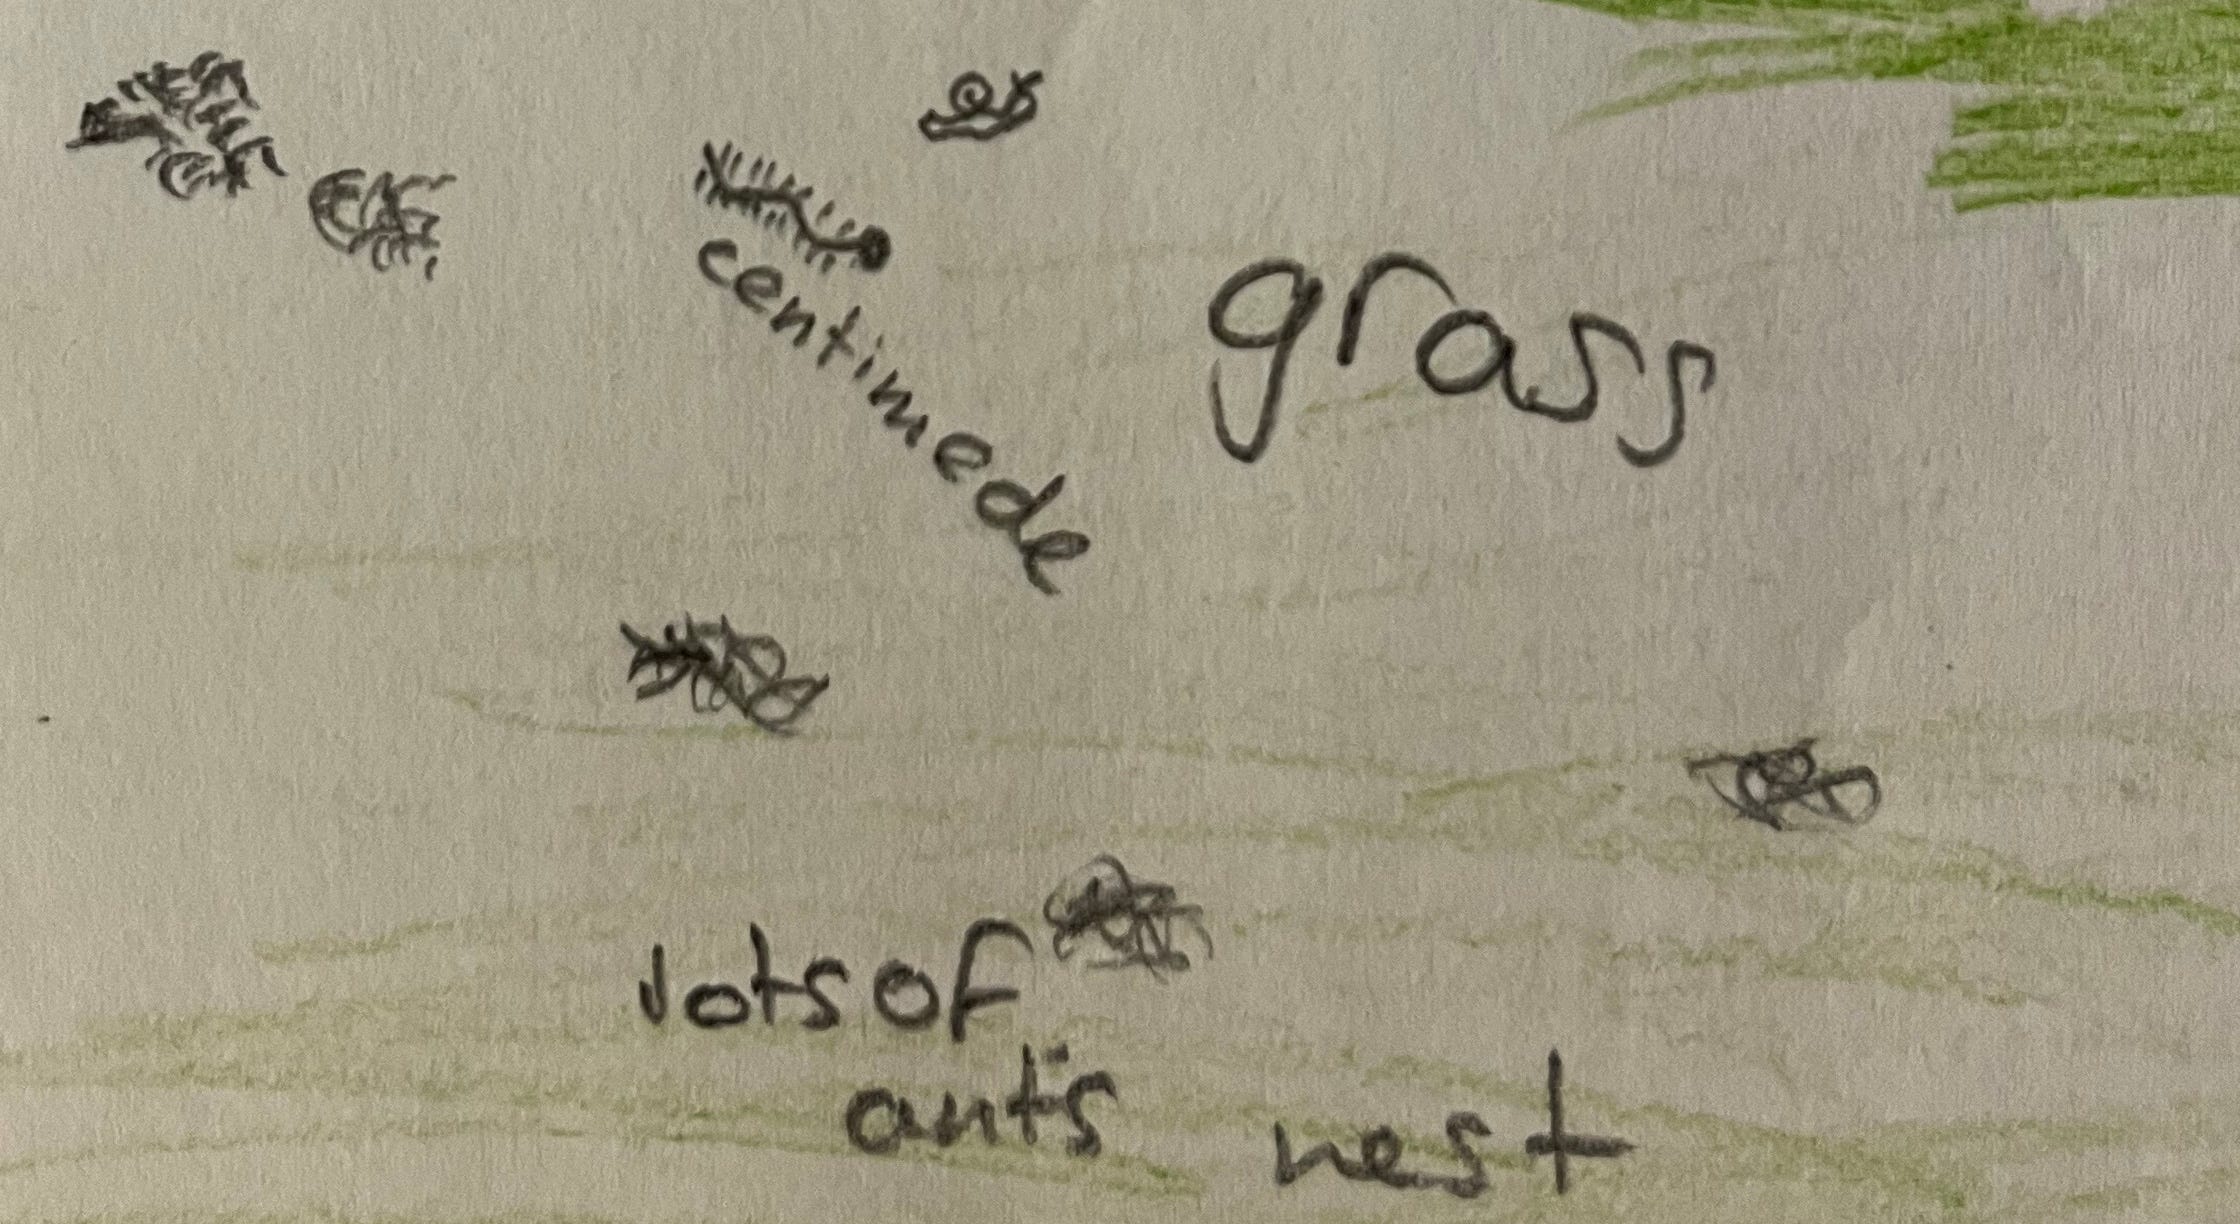 centimede
grass
lots of
ant's nest